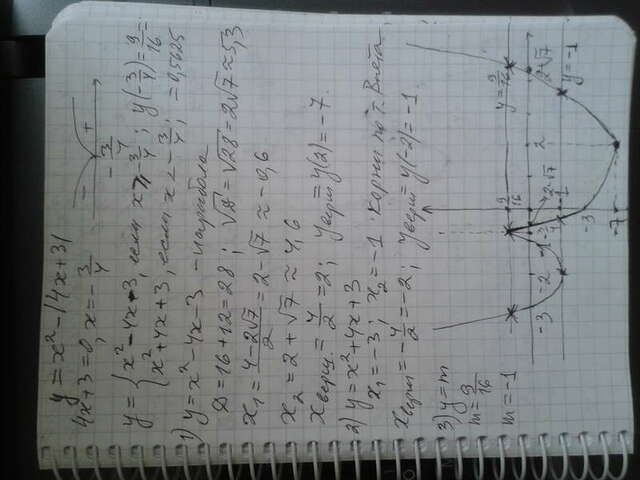 y = x² - |4x+3|
4x+3=0, x = -3/4
- + -3/4
y = { x² - 4x - 3, если x ≥ -3/4 ; y(-3/4) = 9/16 =
x² + 4x + 3, если x < -3/4 ; = 0,5625
1) y = x² - 4x - 3 - парабола
D = 16 + 12 = 28 ; √D = √28 = 2√7 ≈ 5,3
x₁ = (4 - 2√7)/2 = 2 - √7 ≈ -0,6
x₂ = 2 + √7 ≈ 4,6
x верш. = 4/2 = 2 ; y верш = y(2) = -7.
2) y = x² + 4x + 3
x₁ = -3 ; x₂ = -1 - корни по т. Виета
x верш = -4/2 = -2 ; y верш = y(-2) = -1.
3) y = m
m = 9/16
m = -1
y = 9/16
9/16
-3 -2 -1 -3/4 2-√7 2 2+√7
-1 y = -1
-3
-7